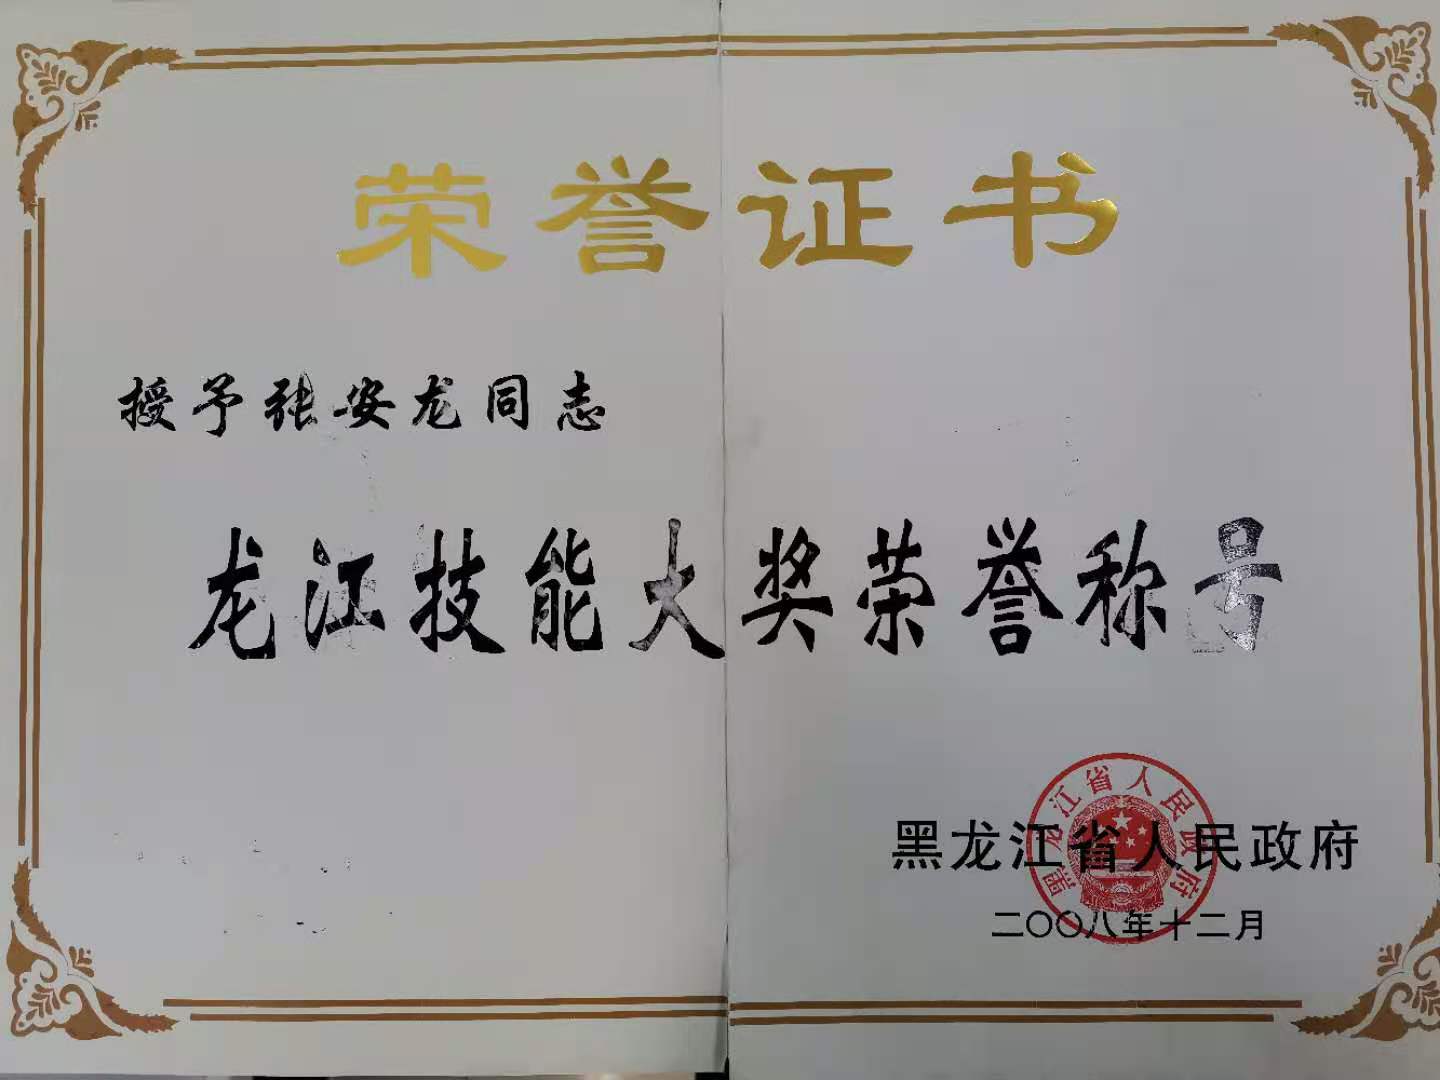 荣誉证书
授予张安龙同志
龙江技能大奖荣誉称号
黑龙江省人民政府
黑龙江省人民政府
二〇〇八年十二月